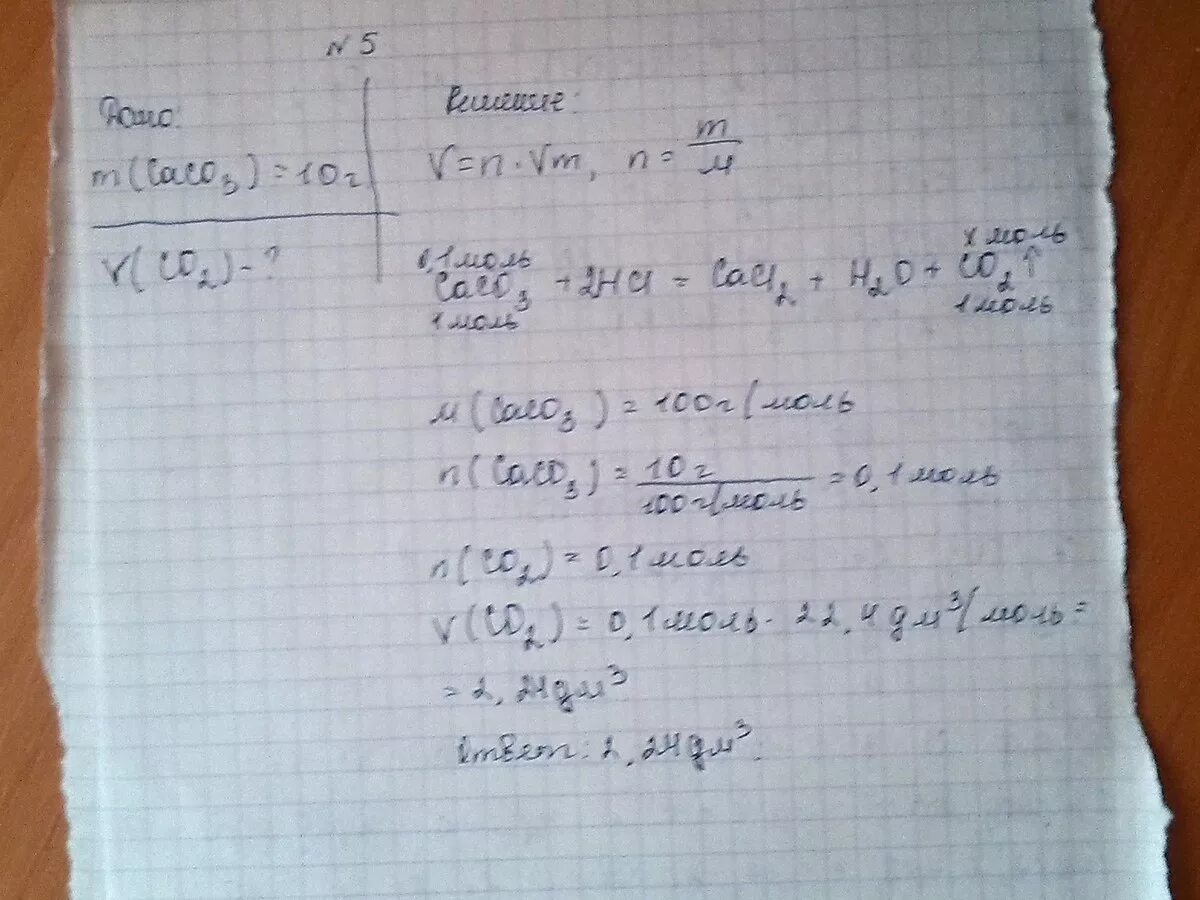 N 5
Дано:
m(CaCO3) = 10г
V(CO2) - ?
Решение:
V = n · Vm, n = m/M
0,1моль x моль
CaCO3 + 2HCl = CaCl2 + H2O + CO2↑
1моль 1моль
M(CaCO3) = 100г/моль
n(CaCO3) = 10г/100г/моль = 0,1моль
n(CO2) = 0,1моль
V(CO2) = 0,1моль · 22,4дм³/моль =
= 2,24дм³
Ответ: 2,24дм³.